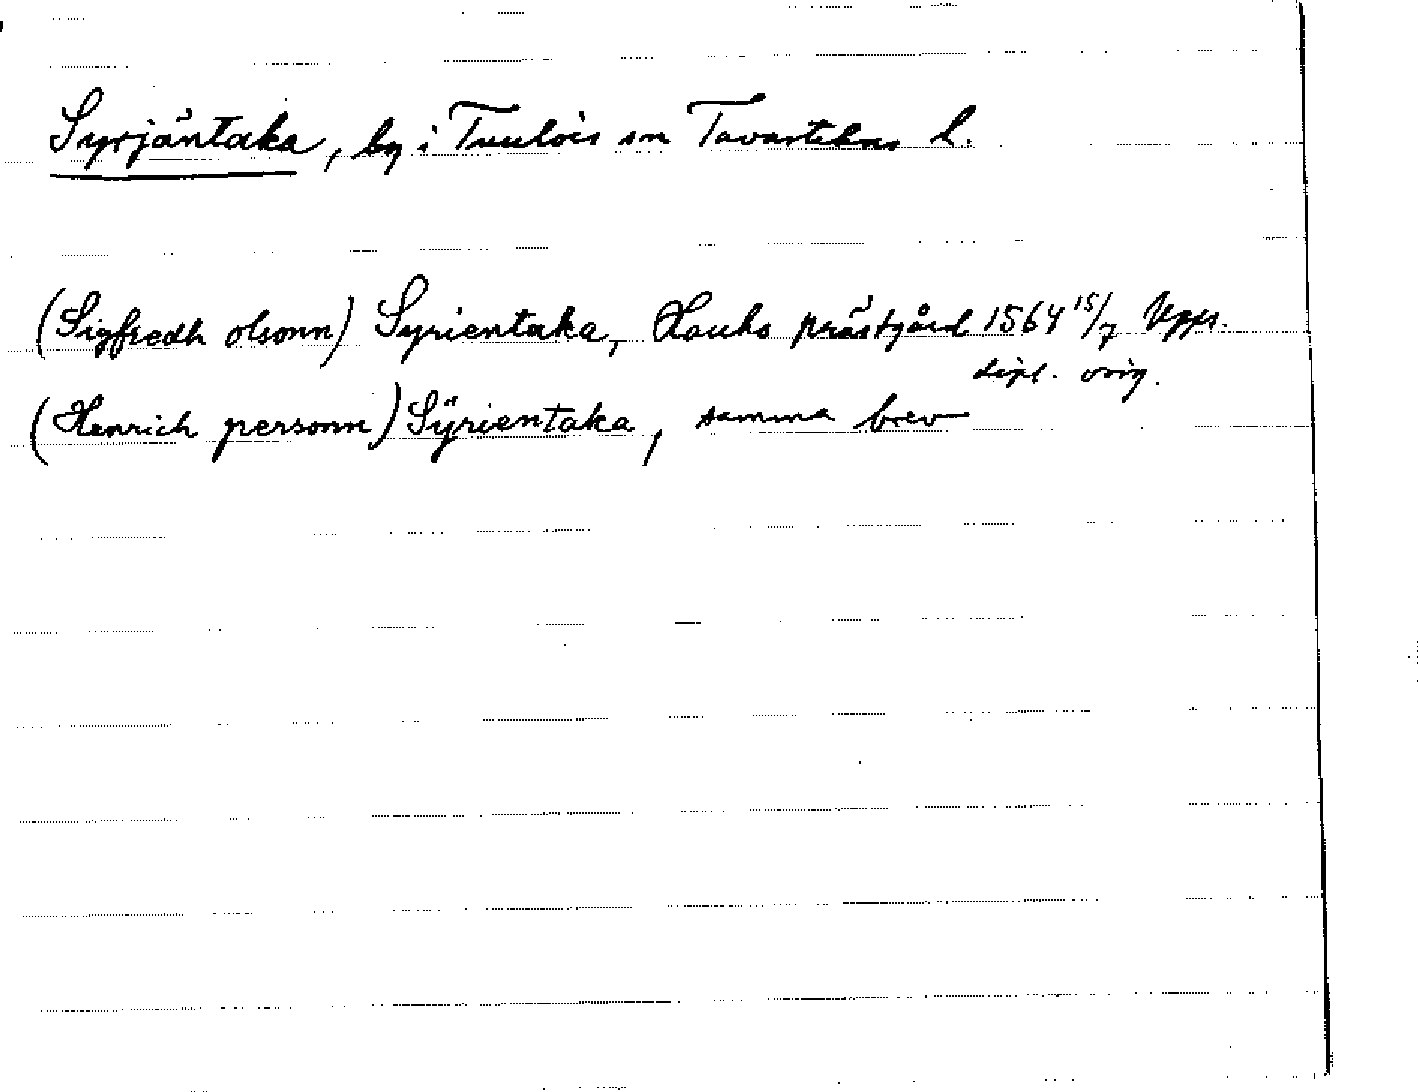 Syrjäntaka, by i Tuulois sn Tavastehus l.
(Sigfredh olsonn) Syrientaka, Hauho prästgård 1564 15/7 Upps.
dipl. orig.
(Henrich personn) Sÿrientaka, samma brev